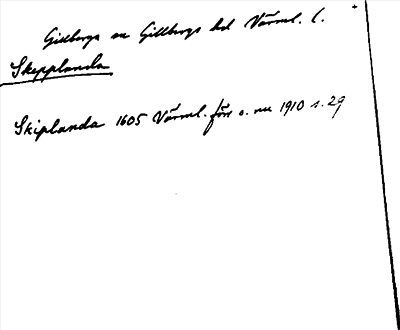 Gillberga sn Gillbergs hd Värml. l.
Skepplanda
Skiplanda 1605 Värml. förr o. nu 1910 s. 29